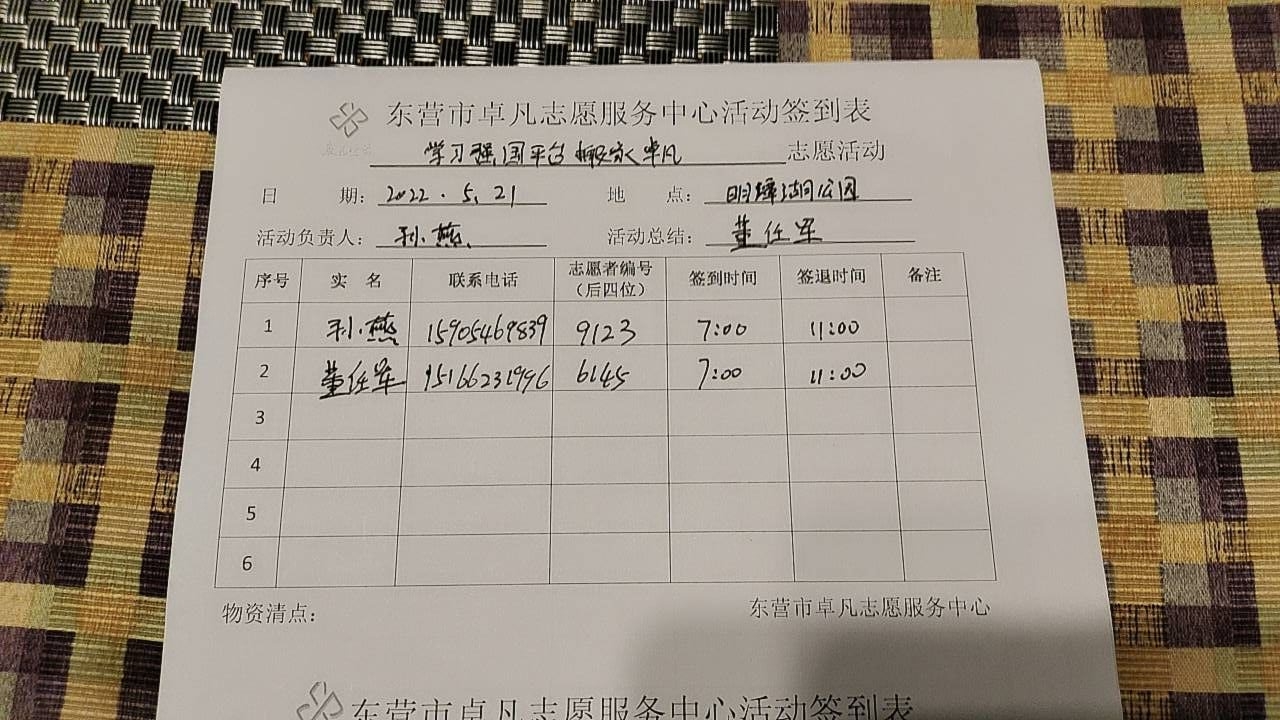 东营市卓凡志愿服务中心活动签到表
学习强国平台搬家卓凡志愿活动
日期：2022.5.21 地点：明潭湖公园
活动负责人：孙燕 活动总结：董任军
序号 实名 联系电话 志愿者编号（后四位） 签到时间 签退时间 备注
1 孙燕 15905469839 9123 7:00 11:00
2 董任军 15166231996 6145 7:00 11:00
3
4
5
6
物资清点： 东营市卓凡志愿服务中心
东营市卓凡志愿服务中心活动签到表